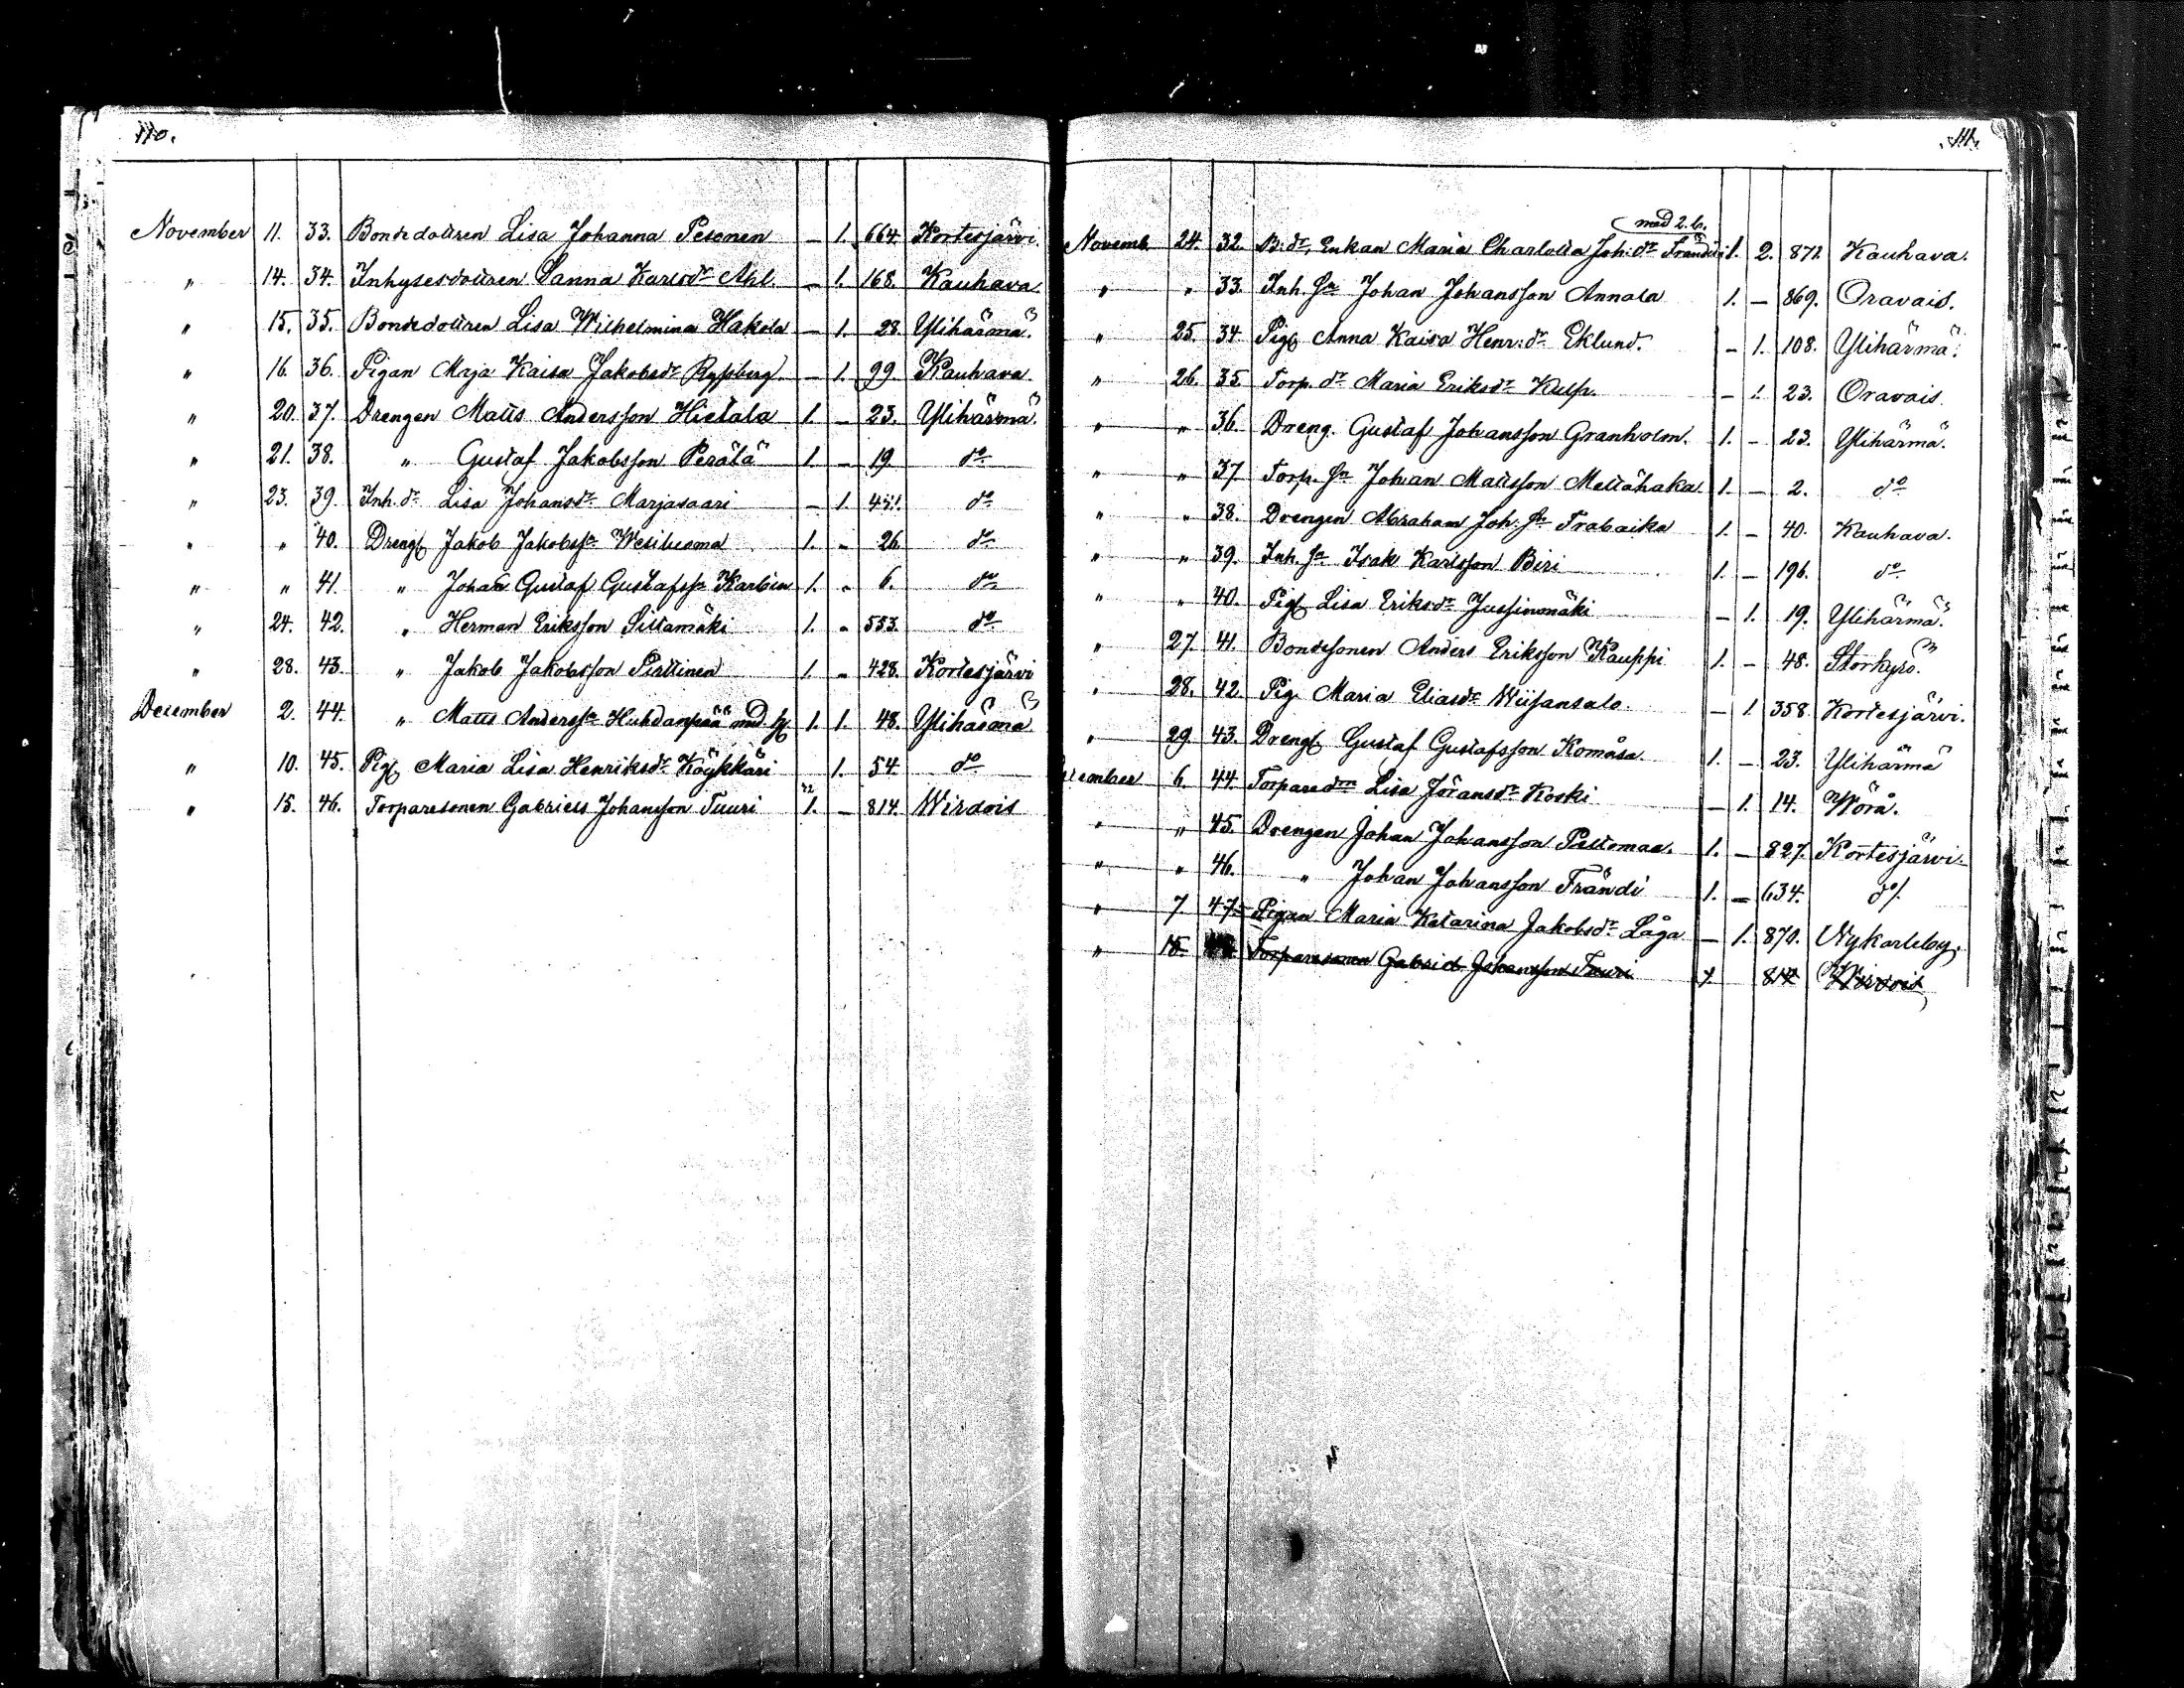 110.
November 11. 33. Bondedottren Lisa Johanna Pesonen — 1. 664. Kortesjärvi.
" 14. 34. Inhysesdottren Sanna Karlsdr Ahl. — 1. 168. Kauhava.
" 15. 35. Bondedottren Lisa Wilhelmina Hakola — 1. 28. Ylihärmä.
" 16. 36. Pigan Maja Kaisa Jakobsdr — 1. 99 Kauhava.
" 20. 37. Drengen Matts Andersson Hietala 1. — 23. Ylihärmä.
" 21. 38. " Gustaf Jakobsson Perälä 1. — 19. do
" 23. 39. Inh. dr Lisa Johansdr Marjasaari — 1. do
" " 40. Dreng Jakob Jakobssn Wesiluoma 1. " 26. do
" " 41. " Johan Gustaf Gustafssn 1. " 6. do
" 24. 42. " Herman Eriksson 1. " 553. do
" 28. 43. " Jakob Jakobsson Pirttinen 1. " 428. Kortesjärvi
December 2. 44. " Matts Anderssn Huhdanpää med h. 1. 1. 48. Ylihärmä
" 10. 45. Pig. Maria Lisa Henriksdr Köykkäri 1. 54. do
" 15. 46. Torparesonen Gabriel Johansson Tuuri 1. — 814. Wirdois
111.
med 2. b.
Novemb. 24. 32. B. dr, Enkan Maria Charlotta Joh: dr Frändi 1. 2. 871. Kauhava.
" " 33. Inh. sn Johan Johansson Annala 1. — 869. Oravais.
" 25. 34. Pig. Anna Kaisa Henr: dr Eklund. — 1. 108. Ylihärmä.
" 26. 35. Torp. dr Maria Eriksdr Kulp. — 1. 23. Oravais.
" " 36. Dreng. Gustaf Johansson Granholm. 1. — 23. Ylihärmä.
" " 37. Torp. sn Johan Mattsson Mettähaka. 1. — 2. do
" " 38. Drengen Abraham Joh: sn Frabaika 1. — 40. Kauhava.
" " 39. Inh. sn Isak Karlsson Biri 1. — 196. do
" " 40. Pig. Lisa Eriksdr Jussinmäki — 1. 19. Ylihärmä.
" 27. 41. Bondesonen Anders Eriksson Kauppi 1. — 48. Storkyrö.
" 28. 42. Pig. Maria Eliasdr Wiisansalo. — 1. 358. Kortesjärvi.
" 29. 43. Dreng. Gustaf Gustafsson Komåsa. 1. — 23. Ylihärmä
December 6. 44. Torparedtrn Lisa Jöransdr Koski — 1. 14. Wörå.
" " 45. Drengen Johan Johansson Peltomaa. 1. — 827. Kortesjärvi.
" " 46. " Johan Johansson Frändi 1. — 634. do.
" 7. 47. Pigan Maria Katarina Jakobsdr Låga — 1. 870. Nykarleby.
" 15. Torparesonen Gabriel Johansson Tuuri 1. 814 Wirdois